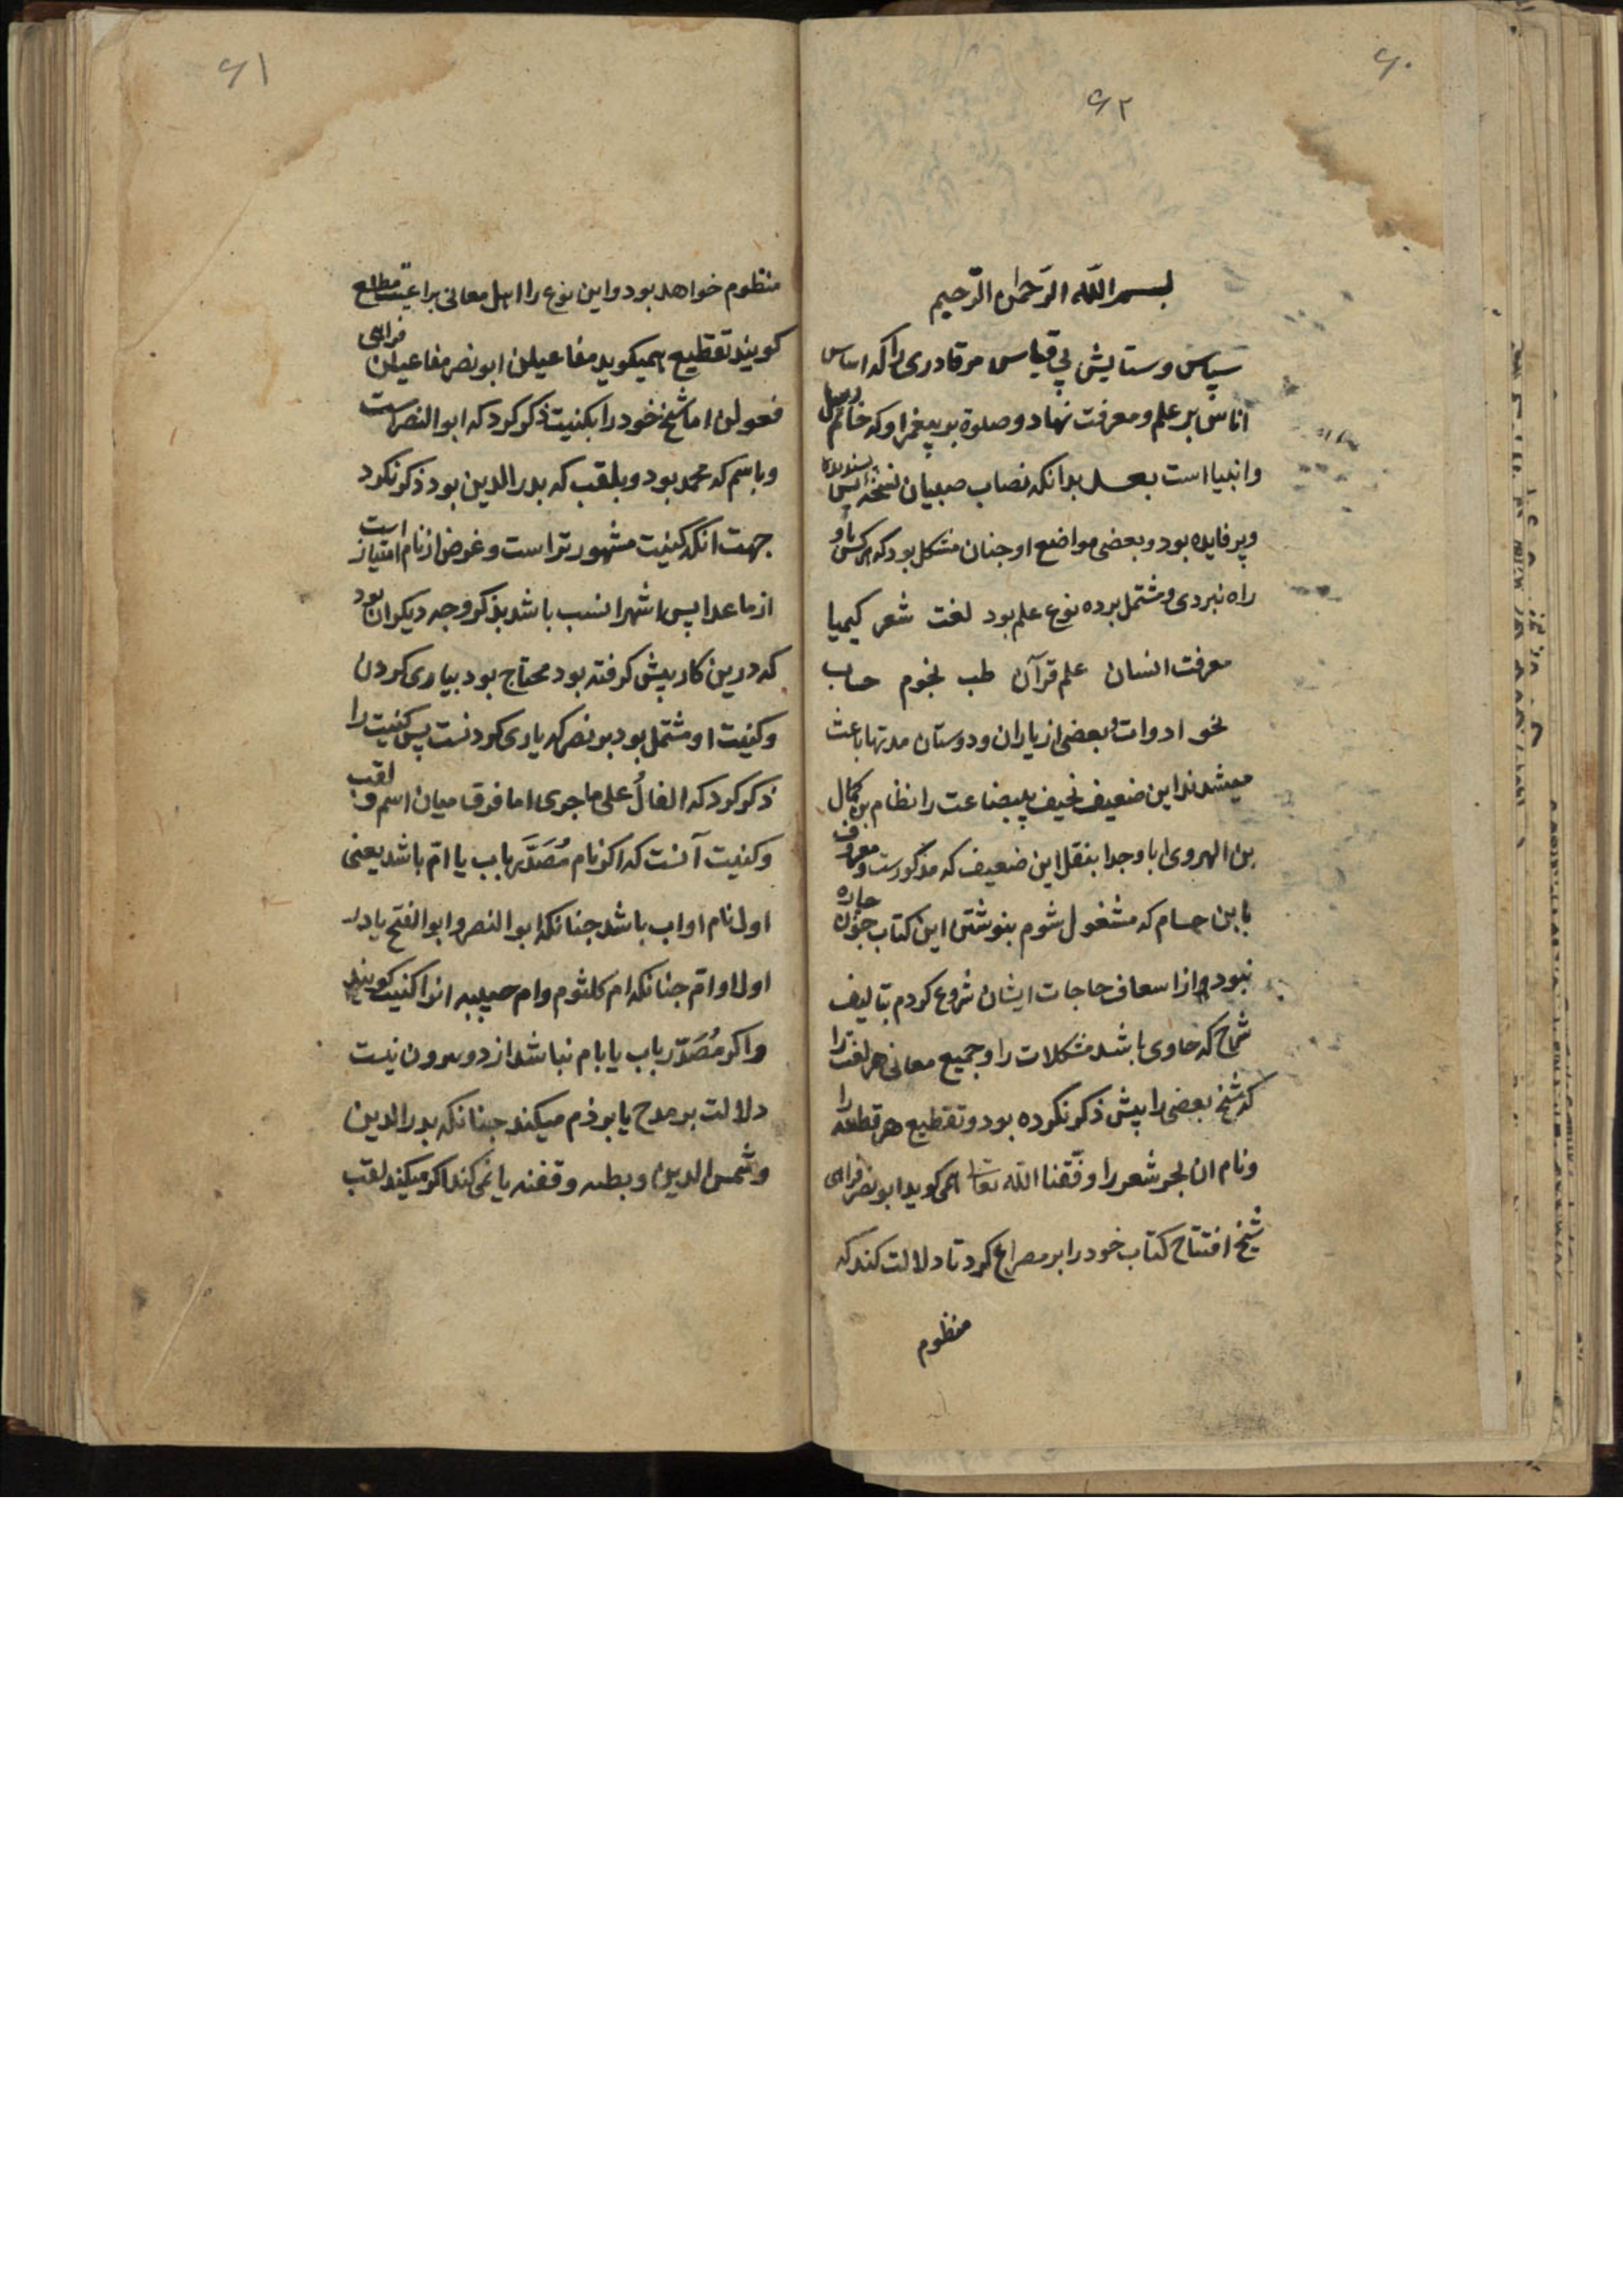 ۶۰
۶۲
بسم الله الرحمن الرحیم
سپاس و ستایش بی قیاس مر قادری را که اساس
اناس بر علم و معرفت نهاد و صلوة بر پیغمبر او که خاتم رسل
و انبیا است بعد بدانکه نصاب صبیان نسخه ایس
و پر فایده بود و بعضی مواضع او جنان مشکل بود که هر کس باو
راه نبردی و مشتمل بر ده نوع علم بود لغت شعر کیمیا
معرفت انسان علم قرآن طب نجوم حساب
نحو ادوات و بعضی از یاران و دوستان مدتها باعث
میشدند این ضعیف نحیف بیبضاعت را نظام بن کمال
بن الهروی ابا وجدا بنقل این ضعیف که مذکورست و معروف
بابن حسام که مشغول شوم بنوشتن این کتاب جون چاره
نبود از اسعاف حاجات ایشان شروع کردم بتالیف
شرح که حاوی باشد مشکلات را و جمیع معانی هر لغت را
که شیخ بعضی را پیش ذکر نکرده بود و تقطیع هر قطعه را
و نام ان بحر شعر را وفقنا الله تعالی همی کوید ابونصر فراهی
شیخ افتتاح کتاب خود را بر مصراع کرد تا دلالت کند که
منظوم
۶۱
منظوم خواهد بود و این نوع را اهل معانی براعت مطلع
کویند تقطیع همیکوید مفاعیلن ابونصر مفاعیلن فراهی
فعولن اما شیخ خود را بکنیت ذکر کرد که ابوالنصرست
و باسم که محمد بود و بلقب که بدرالدین بود ذکر نکرد
جهت انکه کنیت مشهورتر است و غرض از نام امتیاز است
از ماعدا پس اشهر انسب باشد بذکر وجه دیکر ان بود
که درین کار پیش کرفته بود محتاج بود بیاری کردن
و کنیت او مشتمل بود بونصر که یاری کردنست پس کنیت را
ذکر کرد که الفال علی ماجری اما فرق میان اسم و لقب
و کنیت آنست که اکر نام مصدر باب یا ام باشد یعنی
اول نام او اب باشد جنانکه ابوالنصر و ابوالفتح یا در
اول او ام جنانکه ام کلثوم و ام حبیبه انرا کنیت کویند
و اکر مصدر باب یا بام نباشد از دو بیرون نیست
دلالت بر مدح یا بر ذم میکند جنانکه بدرالدین
و شمس الدین و بطه و قفنه یا نمی کند اکر میکند لقب